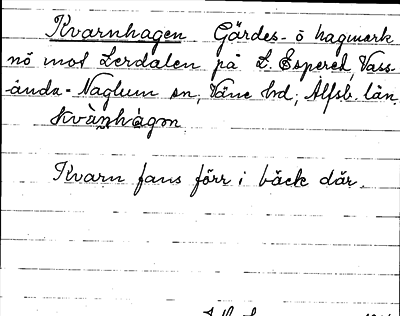 Kvarnhagen Gärdes- o hagmark
nö mot Lerdalen på L. Espered, Vass-
ända-Naglum sn, Väne hd, Älfsb. län.
kvàn̥hàgɷn
Kvarn fans förr i bäck där.